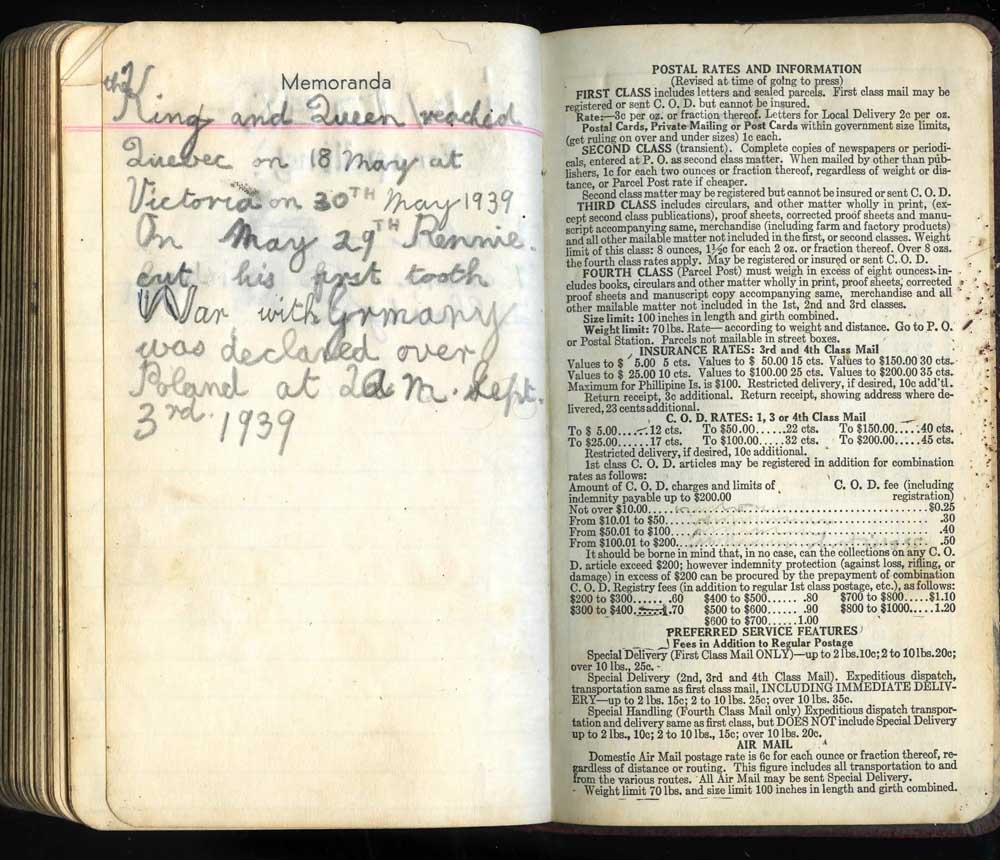 Memoranda
the
King and Queen reached
Quebec on 18 May at
Victoria on 30TH May 1939
On May 29TH Rennie.
cut his first tooth
War with Grmany
was declared over
Poland at 2 a m. Sept.
3rd. 1939
POSTAL RATES AND INFORMATION
(Revised at time of going to press)
FIRST CLASS includes letters and sealed parcels. First class mail may be
registered or sent C. O. D. but cannot be insured.
Rate:—3c per oz. or fraction thereof. Letters for Local Delivery 2c per oz.
Postal Cards, Private Mailing or Post Cards within government size limits,
(get ruling on over and under sizes) 1c each.
SECOND CLASS (transient). Complete copies of newspapers or periodi-
cals, entered at P. O. as second class matter. When mailed by other than pub-
lishers, 1c for each two ounces or fraction thereof, regardless of weight or dis-
tance, or Parcel Post rate if cheaper.
Second class matter may be registered but cannot be insured or sent C. O. D.
THIRD CLASS includes circulars, and other matter wholly in print, (ex-
cept second class publications), proof sheets, corrected proof sheets and manu-
script accompanying same, merchandise (including farm and factory products)
and all other mailable matter not included in the first, or second classes. Weight
limit of this class: 8 ounces, 1½c for each 2 oz. or fraction thereof. Over 8 ozs.
the fourth class rates apply. May be registered or insured or sent C. O. D.
FOURTH CLASS (Parcel Post) must weigh in excess of eight ounces: in-
cludes books, circulars and other matter wholly in print, proof sheets, corrected
proof sheets and manuscript copy accompanying same, merchandise and all
other mailable matter not included in the 1st, 2nd and 3rd classes.
Size limit: 100 inches in length and girth combined.
Weight limit: 70 lbs. Rate— according to weight and distance. Go to P. O.
or Postal Station. Parcels not mailable in street boxes.
INSURANCE RATES: 3rd and 4th Class Mail
Values to $ 5.00 5 cts. Values to $ 50.00 15 cts. Values to $150.00 30 cts.
Values to $ 25.00 10 cts. Values to $100.00 25 cts. Values to $200.00 35 cts.
Maximum for Phillipine Is. is $100. Restricted delivery, if desired, 10c add'tl.
Return receipt, 3c additional. Return receipt, showing address where de-
livered, 23 cents additional.
C. O. D. RATES: 1, 3 or 4th Class Mail
To $ 5.00......12 cts. To $50.00......22 cts. To $150.00.....40 cts.
To $25.00......17 cts. To $100.00.....32 cts. To $200.00.....45 cts.
Restricted delivery, if desired, 10c additional.
1st class C. O. D. articles may be registered in addition for combination
rates as follows:
Amount of C. O. D. charges and limits of C. O. D. fee (including
indemnity payable up to $200.00 registration)
Not over $10.00......$0.25
From $10.01 to $50......30
From $50.01 to $100......40
From $100.01 to $200......50
It should be borne in mind that, in no case, can the collections on any C. O.
D. article exceed $200; however indemnity protection (against loss, rifling, or
damage) in excess of $200 can be procured by the prepayment of combination
C. O. D. Registry fees (in addition to regular 1st class postage, etc.), as follows:
$200 to $300...... .60 $400 to $500...... .80 $700 to $800.....$1.10
$300 to $400...... .70 $500 to $600...... .90 $800 to $1000.....1.20
$600 to $700......1.00
PREFERRED SERVICE FEATURES
Fees in Addition to Regular Postage
Special Delivery (First Class Mail ONLY)—up to 2 lbs. 10c; 2 to 10 lbs. 20c;
over 10 lbs., 25c.
Special Delivery (2nd, 3rd and 4th Class Mail). Expeditious dispatch,
transportation same as first class mail, INCLUDING IMMEDIATE DELIV-
ERY—up to 2 lbs. 15c; 2 to 10 lbs. 25c; over 10 lbs. 35c.
Special Handling (Fourth Class Mail only) Expeditious dispatch transpor-
tation and delivery same as first class, but DOES NOT include Special Delivery
up to 2 lbs., 10c; 2 to 10 lbs., 15c; over 10 lbs. 20c.
AIR MAIL
Domestic Air Mail postage rate is 6c for each ounce or fraction thereof, re-
gardless of distance or routing. This figure includes all transportation to and
from the various routes. All Air Mail may be sent Special Delivery.
Weight limit 70 lbs. and size limit 100 inches in length and girth combined.